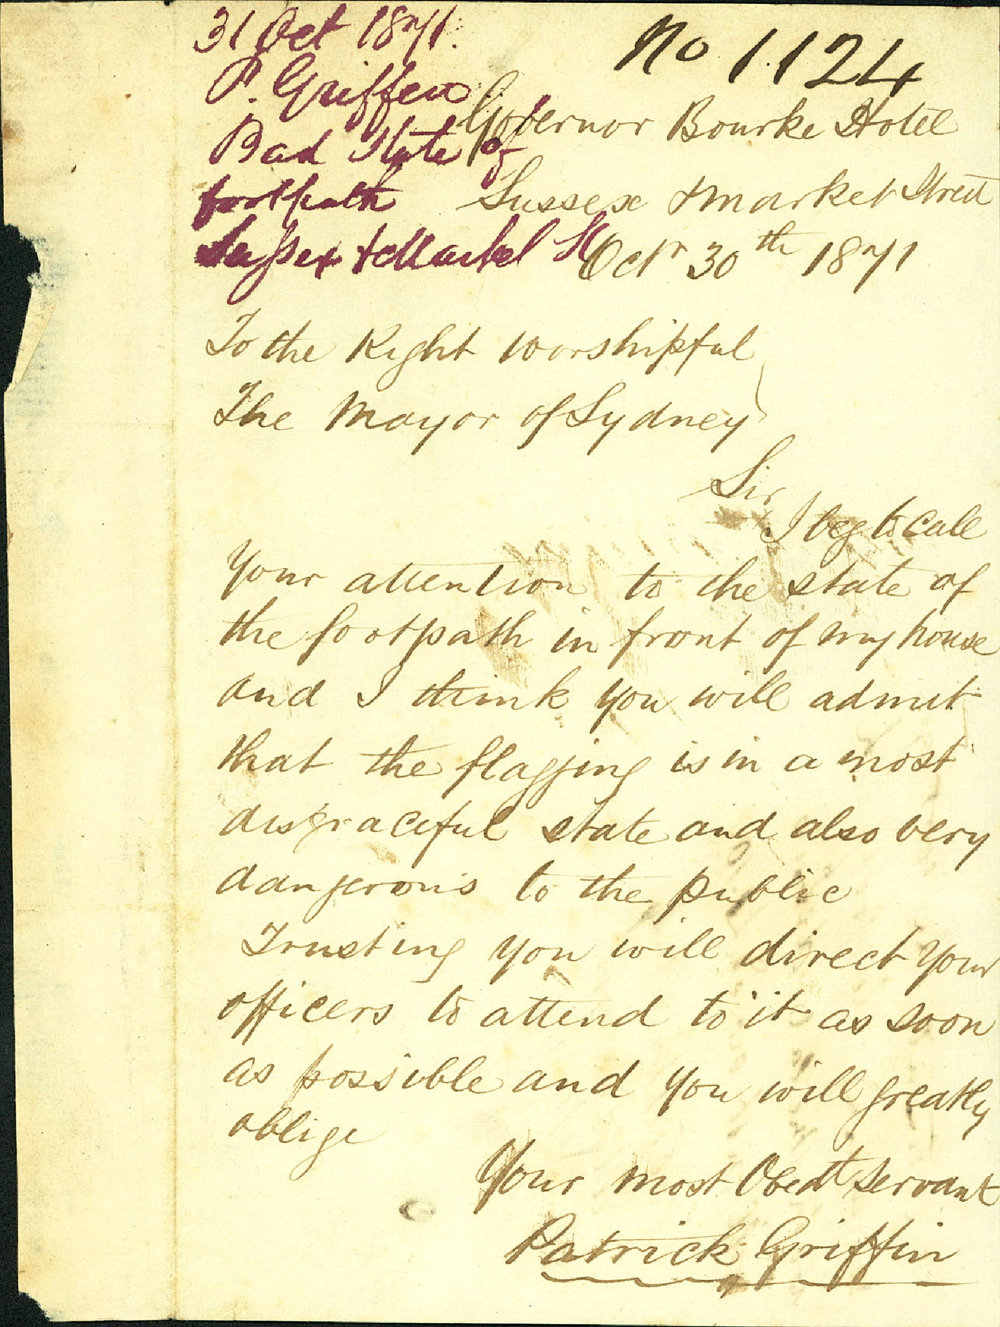 31 Oct 1871.
P. Griffen
Bad State of
footpath
Sussex & Market St
No 1.124
Governor Bourke Hotel
Sussex & Market Street
Octr 30th 1871
To the Right Worshipful
The Mayor of Sydney
Sir
I beg to call
Your attention to the state of
the footpath in front of my house
and I think you will admit
that the flagging is in a most
disgraceful state and also very
dangerous to the public
Trusting you will direct your
officers to attend to it as soon
as possible and you will greatly
oblige
Your most Obedt servant
Patrick Griffin